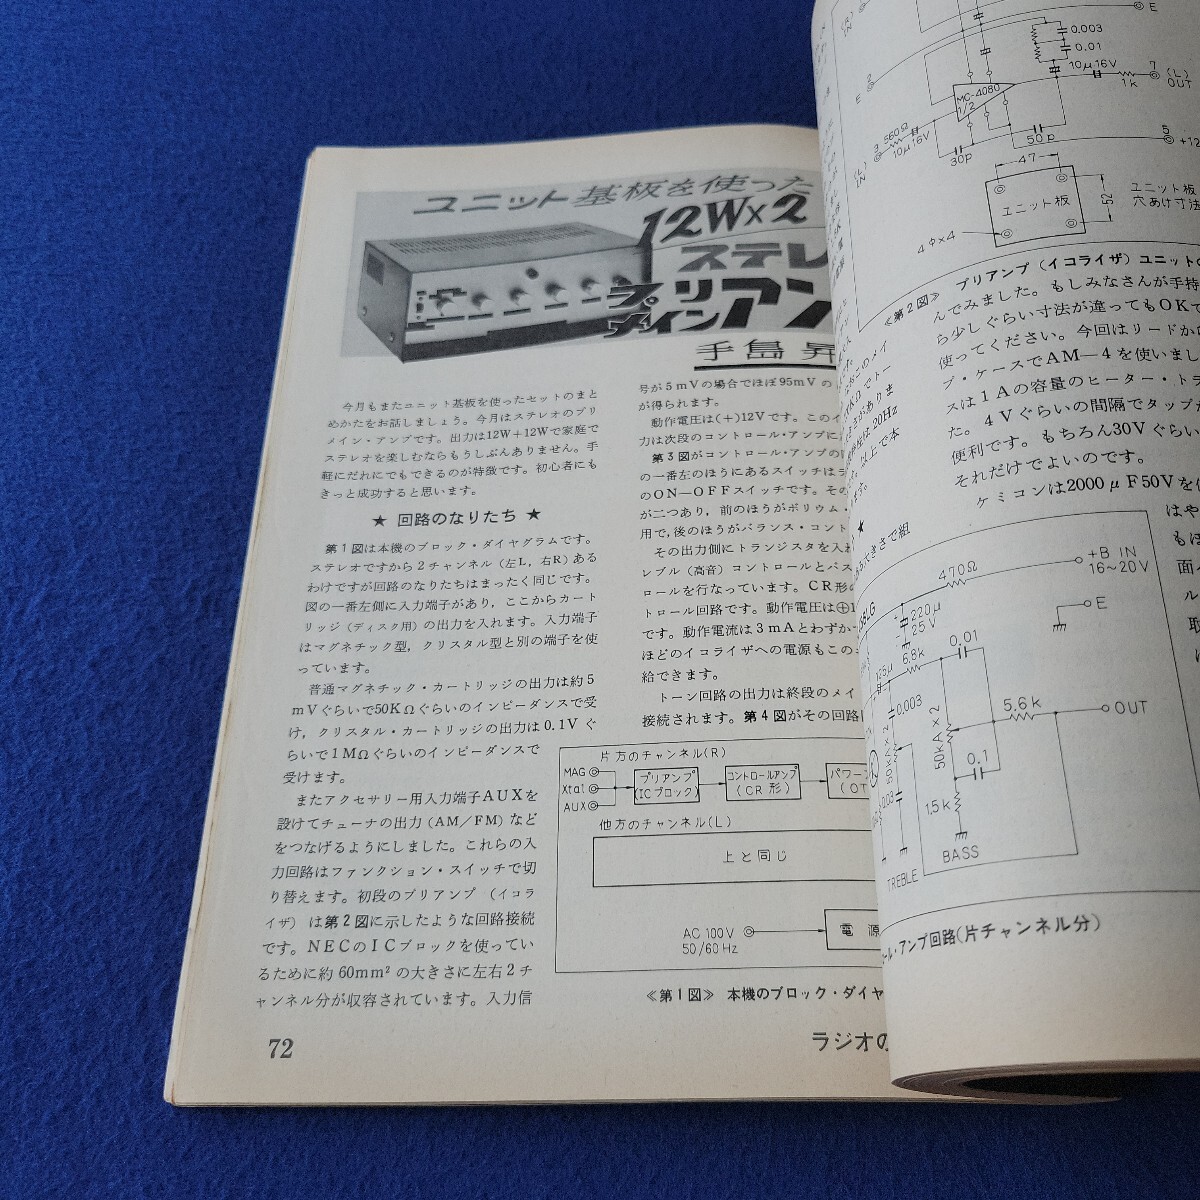 ユニット基板を使った
12W×2
ステレ
プリ
メイン
アン
手島 昇
今月もまたユニット基板を使ったセットのまと
めかたをお話しましょう。今月はステレオのプリ
メイン・アンプです。出力は12W+12Wで家庭で
ステレオを楽しむならもうしぶんありません。手
軽にだれにでもできるのが特徴です。初心者にも
きっと成功すると思います。
★ 回路のなりたち ★
第1図は本機のブロック・ダイヤグラムです。
ステレオですから2チャンネル（左L，右R）ある
わけですが回路のなりたちはまったく同じです。
図の一番左側に入力端子があり，ここからカート
リッジ（ディスク用）の出力を入れます。入力端子
はマグネチック型，クリスタル型と別の端子を使
っています。
普通マグネチック・カートリッジの出力は約5
mVぐらいで50KΩぐらいのインピーダンスで受
け，クリスタル・カートリッジの出力は0.1Vぐ
らいで1MΩぐらいのインピーダンスで
受けます。
またアクセサリー用入力端子AUXを
設けてチューナの出力（AM／FM）など
をつなげるようにしました。これらの入
力回路はファンクション・スイッチで切
り替えます。初段のプリアンプ（イコラ
イザ）は第2図に示したような回路接続
です。NECのICブロックを使ってい
るために約60mm²の大きさに左右2チ
ャンネル分が収容されています。入力信
号が5mVの場合でほぼ95mVの
が得られます。
動作電圧は(+)12Vです。このイ
力は次段のコントロール・アンプに
第3図がコントロール・アンプの
の一番左のほうにあるスイッチはラ
のON—OFFスイッチです。その
が二つあり，前のほうがボリウム・
用で，後のほうがバランス・コント
その出力側にトランジスタを入れ
レブル（高音）コントロールとバス
ロールを行なっています。CR形の
トロール回路です。動作電圧は⊕1
です。動作電流は3mAとわずか
ほどのイコライザへの電源もこの
給できます。
トーン回路の出力は終段のメイ
接続されます。第4図がその回路
片方のチャンネル(R)
MAG
Xtal
AUX
プリアンプ
(ICブロック)
コントロールアンプ
(CR形)
パワーア
(OT
他方のチャンネル(L)
上と同じ
AC 100V
50/60Hz
電源
≪第1図≫ 本機のブロック・ダイヤ
72
ラジオの
(R)
IN
E
0.003
0.01
10μ16V
7
(L)
OUT
1k
2
E
MC-4080
1/2
3
560Ω
10μ16V
(L)
IN
30P
50P
5
+12
47
52
ユニット板
4φ×4
ユニット板
穴あけ寸法
≪第2図≫ プリアンプ（イコライザ）ユニットの
んでみました。もしみなさんが手持
ら少しぐらい寸法が違ってもOKで
使ってください。今回はリードか
ブ・ケースでAM—4を使いまし
スは1Aの容量のヒーター・トラ
た。4Vぐらいの間隔でタップが
便利です。もちろん30Vぐらい
それだけでよいのです。
ケミコンは2000μF50Vを使
はや
もほ
面
ル
取
470Ω
+B IN
16~20V
E
220μ
25V
6.8k
0.01
0.003
50KA×2
50KA×2
5.6k
OUT
0.1
1.5k
0.03
TREBLE
BASS
ール・アンプ回路(片チャンネル分)